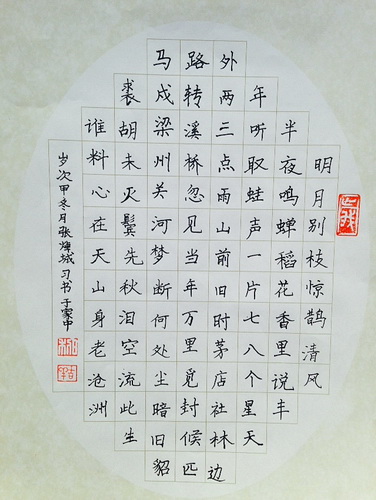 明月别枝惊鹊清风
半夜鸣蝉稻花香里说丰
年听取蛙声一片七八个星天
外两三点雨山前旧时茅店社林边
路转溪桥忽见当年万里觅封候匹
马戍梁州关河梦断何处尘暗旧貂
裘胡未灭鬓先秋泪空流此生
谁料心在天山身老沧洲
岁次甲冬月张城习书于家中